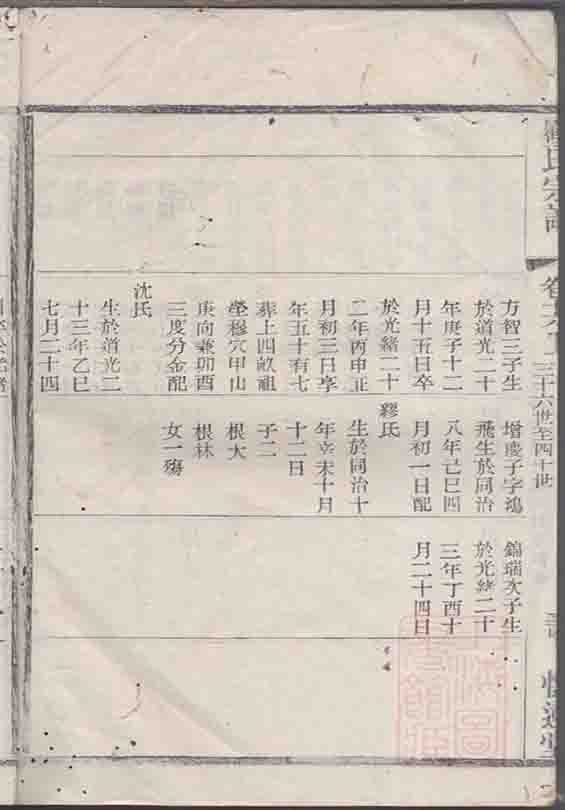 氏宗譜
三十六世至四十世
方智三子生
於道光二十
年庚子十二
月十五日卒
於光緒二十
二年丙申正
月初三日享
年五十有七
葬上四畝祖
塋穆穴甲山
庚向兼卯酉
三度分金配
沈氏
生於道光二
十三年乙巳
七月二十四
增慶子字鴻
飛生於同治
八年己巳四
月初一日配
繆氏
生於同治十
年辛未十月
十二日
子二
根大
根林
女一殤
錦瑞次子生
於光緒二十
三年丁酉十
月二十四日
上海圖書館藏